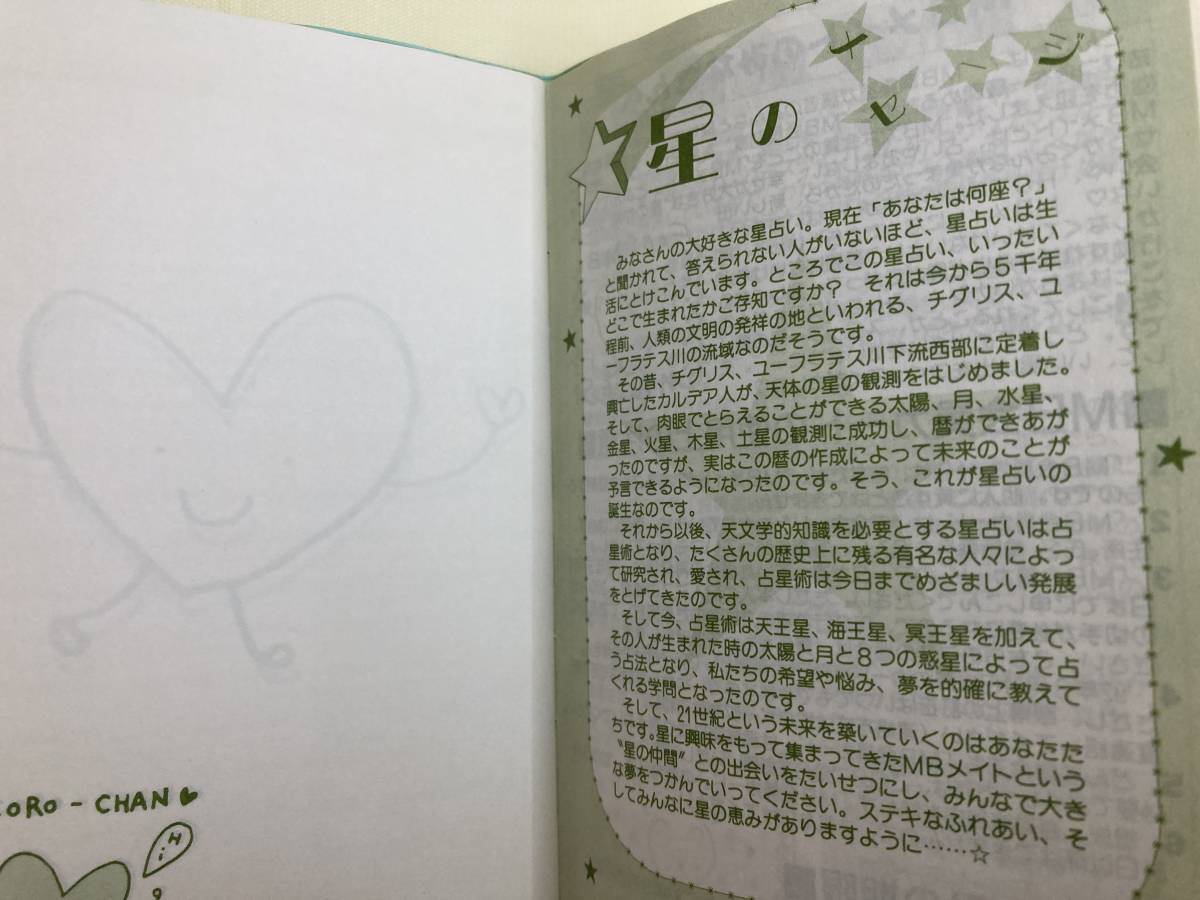 星のメッセージ
みなさんの大好きな星占い。現在「あなたは何座？」
と聞かれて、答えられない人がいないほど、星占いは生
活にとけこんでいます。ところでこの星占い、いったい
どこで生まれたかご存知ですか？　それは今から５千年
程前、人類の文明の発祥の地といわれる、チグリス、ユ
ーフラテス川の流域なのだそうです。
その昔、チグリス、ユーフラテス川下流西部に定着し
興亡したカルデア人が、天体の星の観測をはじめました。
そして、肉眼でとらえることができる太陽、月、水星、
金星、火星、木星、土星の観測に成功し、暦ができあが
ったのですが、実はこの暦の作成によって未来のことが
予言できるようになったのです。そう、これが星占いの
誕生なのです。
それから以後、天文学的知識を必要とする星占いは占
星術となり、たくさんの歴史上に残る有名な人々によっ
て研究され、愛され、占星術は今日までめざましい発展
をとげてきたのです。
そして今、占星術は天王星、海王星、冥王星を加えて、
その人が生まれた時の太陽と月と８つの惑星によって占
う占法となり、私たちの希望や悩み、夢を的確に教えて
くれる学問となったのです。
そして、21世紀という未来を築いていくのはあなたた
ちです。星に興味をもって集まってきたMBメイトという
“星の仲間”との出会いをたいせつにし、みんなで大き
な夢をつかんでいってください。ステキなふれあい、そ
してみんなに星の恵みがありますように……☆
ORO - CHAN♥